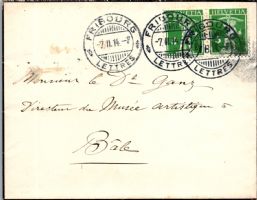 FRIBOURG
-7.II.14.-
LETTRES
FRIBOURG
-7.II.14
LETTRES
FRIBOURG
LETTRES
HELVETIA
HELVETIA
Monsieur le Dr Ganz
Directeur du Musée artistique à
Bâle